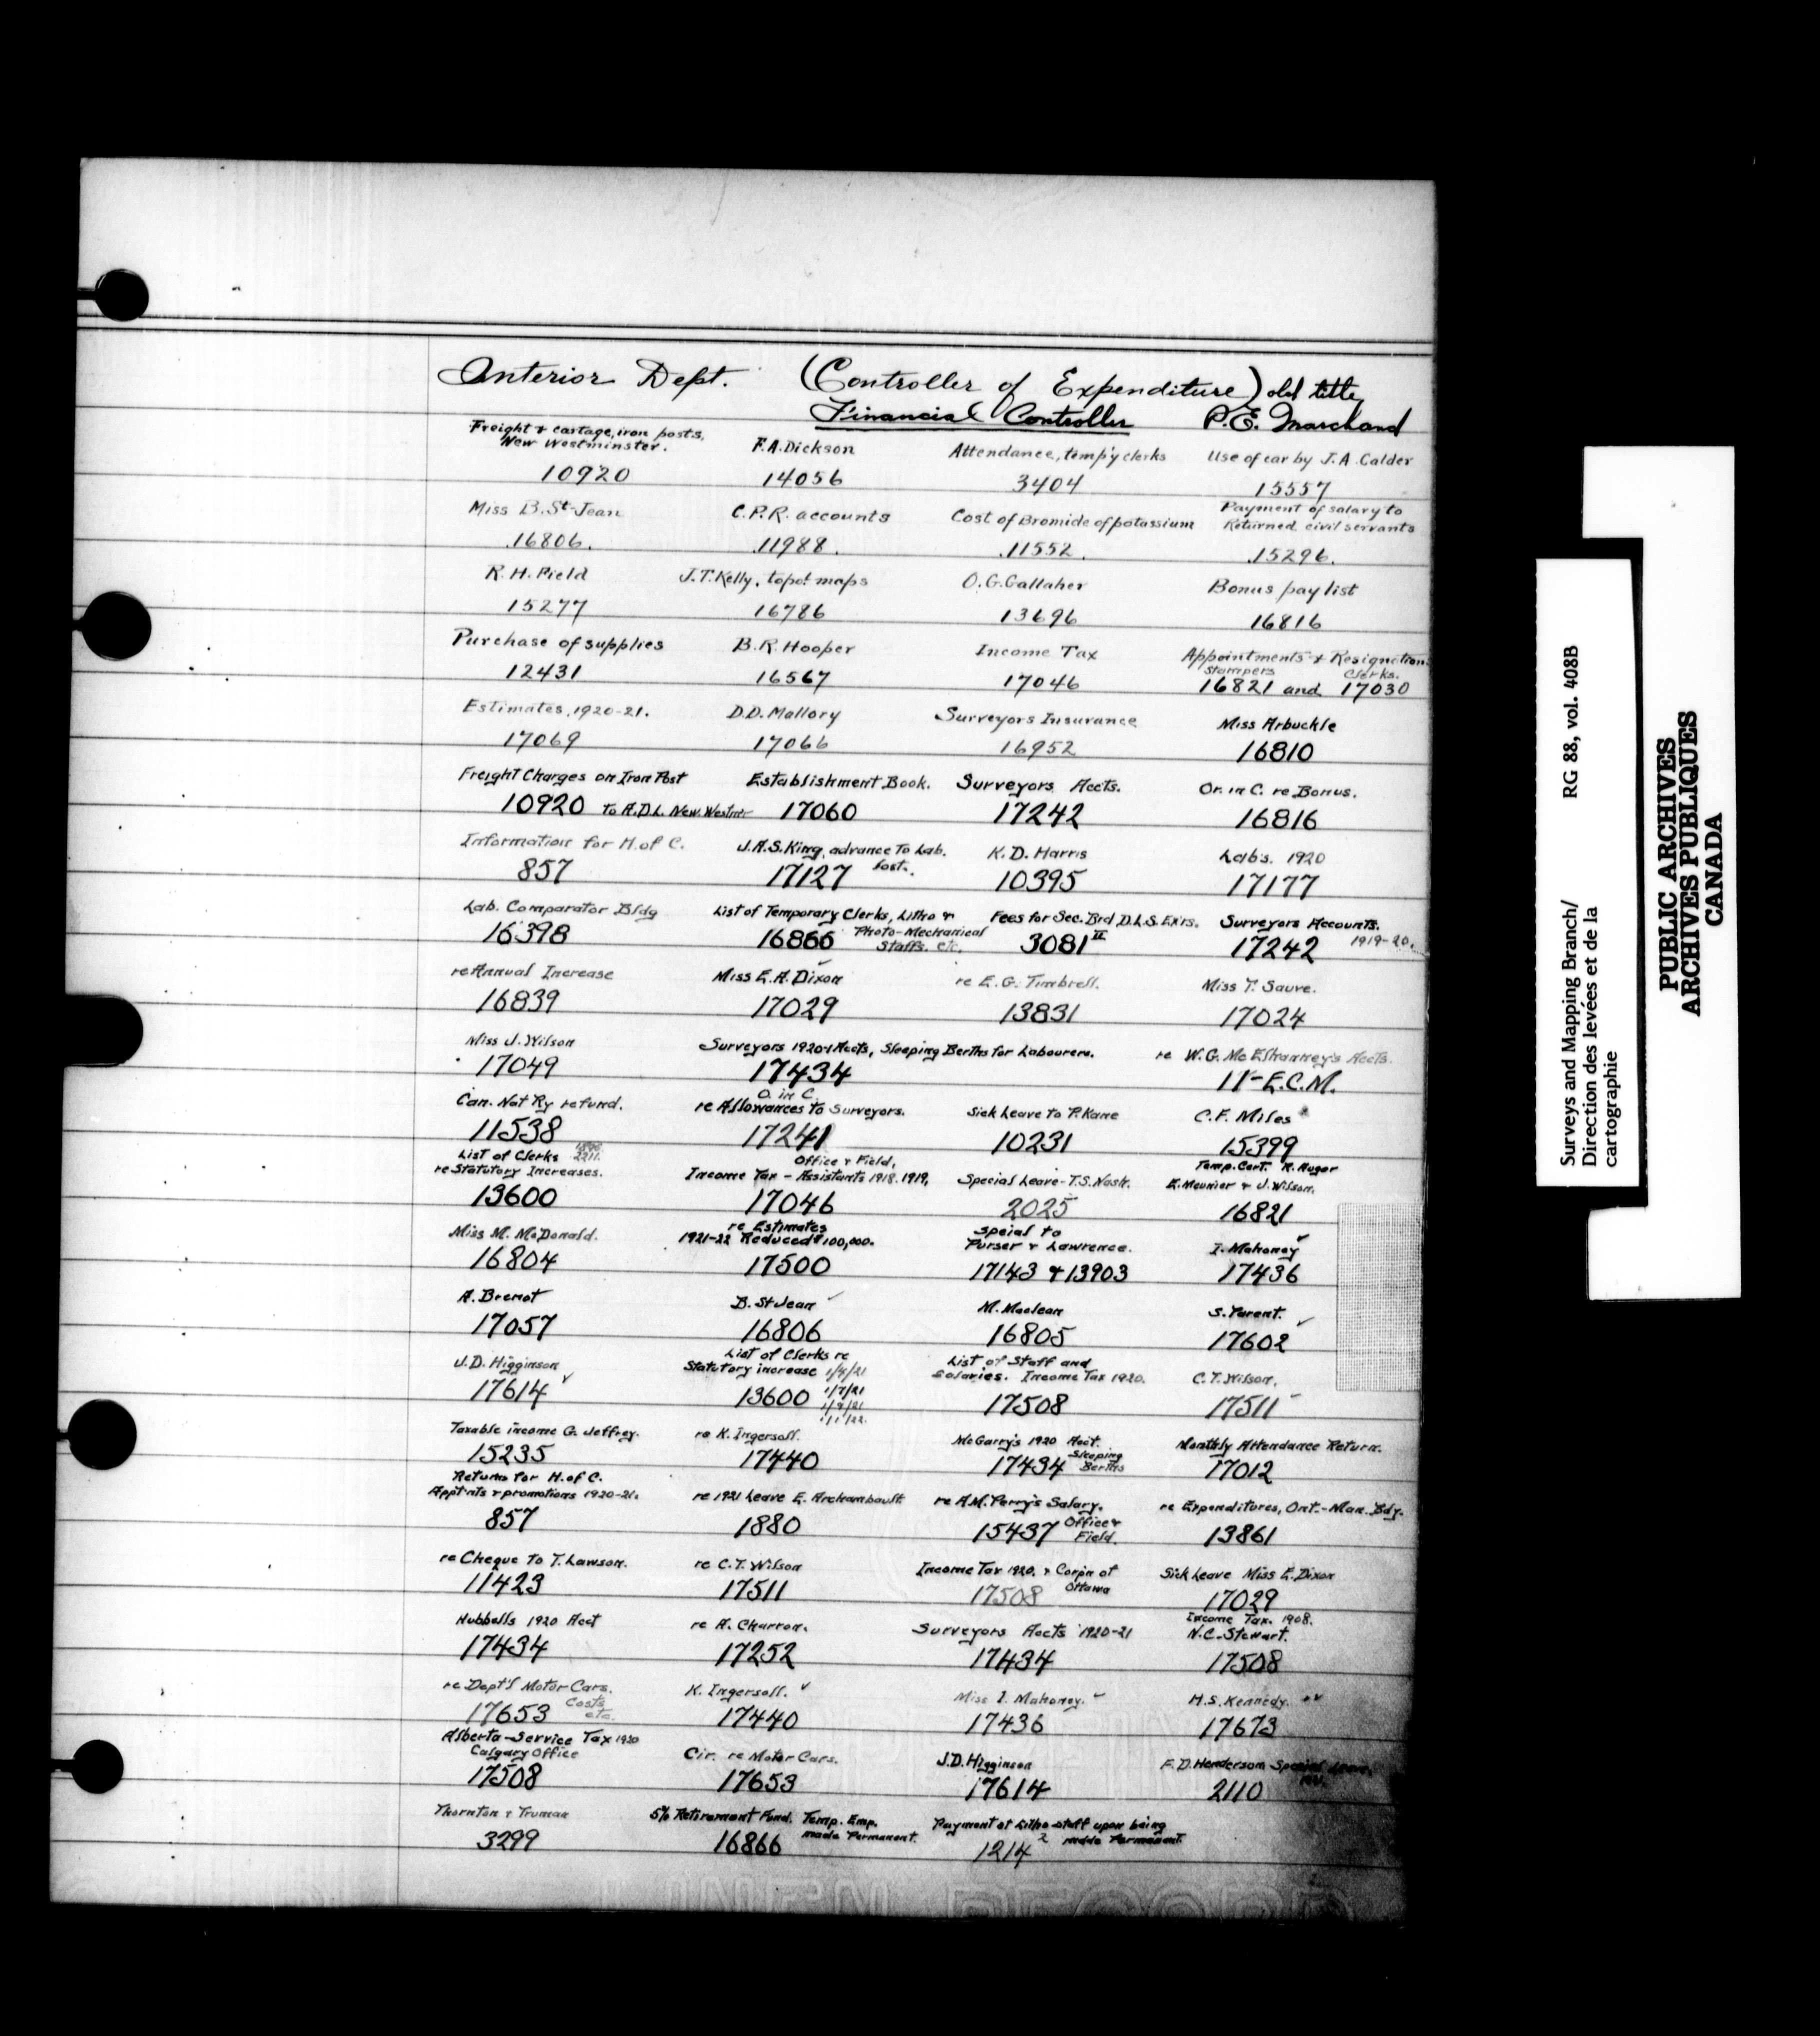 Interior Dept. (Controller of Expenditure) old title
Financial Controller P.E. Marchand
Freight & cartage, iron posts, New Westminster. F.A. Dickson Attendance, temp'y clerks Use of car by J.A. Calder
10920 14056 3404 15557
Miss B. St-Jean C.P.R. accounts Cost of Bromide of potassium Payment of salary to Returned civil servants
16806. 11988. 11552. 15296.
R.H. Field J.T. Kelly, topol maps O.G. Gallaher Bonus pay list
15277 16786 13696 16816
Purchase of supplies B.R. Hooper Income Tax Appointments & Resignations
Stampers Clerks.
12431 16567 17046 16821 and 17030
Estimates, 1920-21. D.D. Mallory Surveyors Insurance Miss Arbuckle
17069 17066 16952 16810
Freight Charges on Iron Post Establishment Book. Surveyors Accts. Or. in C. re Bonus.
10920 to A.D.L. New Westmr 17060 17242 16816
Information for H. of C. J.A.S. King, advance to Lab. K.D. Harris Labs. 1920
857 17127 lost. 10395 17177
Lab. Comparator Bldg List of Temporary Clerks, Litho & Fees for Sec. Brd D.L.S. Exrs. Surveyors Accounts.
16398 16866 Photo-Mechanical Staffs. etc. 3081 II 17242 1919-20.
re Annual Increase Miss E.A. Dixon re E.G. Timbrell. Miss T. Sauve.
16839 17029 13831 17024
Miss J. Wilson Surveyors 1920-1 Accts, Sleeping Berths for Labourers. re W.G. McElhanney's Accts.
17049 17434 11-E.C.M.
Can. Nat Ry refund. O. in C. re Allowances to Surveyors. Sick Leave to P. Kane C.F. Miles
11538 17241 10231 15399
List of Clerks re Statutory Increases. Office & Field, Income Tax - Assistants 1918. 1919, Special Leave - T.S. Nash. Temp. Cert. R. Auger E. Meunier & J. Wilson.
13600 17046 2025 16821
Miss M. McDonald. re Estimates 1921-22 Reduced $100,000. Speial to Purser & Lawrence. I. Mahoney
16804 17500 17143 & 13903 17436
A. Brenot B. St Jean M. Maclean S. Parent.
17057 16806 16805 17602
J.D. Higginson List of Clerks re Statutory increase 1/4/21 List of Staff and Salaries. Income Tax 1920. C.T. Wilson.
17614 13600 1/7/21 17508 17511
1/1/22.
Taxable income G. Jeffrey. re K. Ingersoll. McGarry's 1920 Acct. Monthly Attendance Return.
15235 17440 17434 Sleeping Berths 17012
Returns for H. of C. Appt'nts & promotions 1920-21. re 1921 Leave E. Archambault re A.M. Perry's Salary. re Expenditures, Ont.-Man. Bdy.
857 1880 15437 Office & Field. 13861
re Cheque to T. Lawson. re C.T. Wilson Income Tax 1920. & Corp'n of Ottawa Sick Leave Miss E. Dixon
11423 17511 17508 17029
Hubbells 1920 Acct re A. Charron. Surveyors Accts 1920-21 Income Tax. 1908. N.C. Stewart.
17434 17252 17434 17508
re Dept'l Motor Cars. K. Ingersoll. Miss I. Mahoney. H.S. Kennedy.
17653 Costs etc. 17440 17436 17673
Alberta-Service Tax 1920 Calgary Office Cir. re Motor Cars. J.D. Higginson F.D. Henderson Special Leave.
17508 17653 17614 2110
Thornton & Truman 5% Retirement Fund. Temp. Emp. made Permanent. Payment of Litho staff upon being made Permanent.
3299 16866 1214 2
LINEN RECORD
Surveys and Mapping Branch/ RG 88, vol. 408B
Direction des levées et de la
cartographie
PUBLIC ARCHIVES
ARCHIVES PUBLIQUES
CANADA